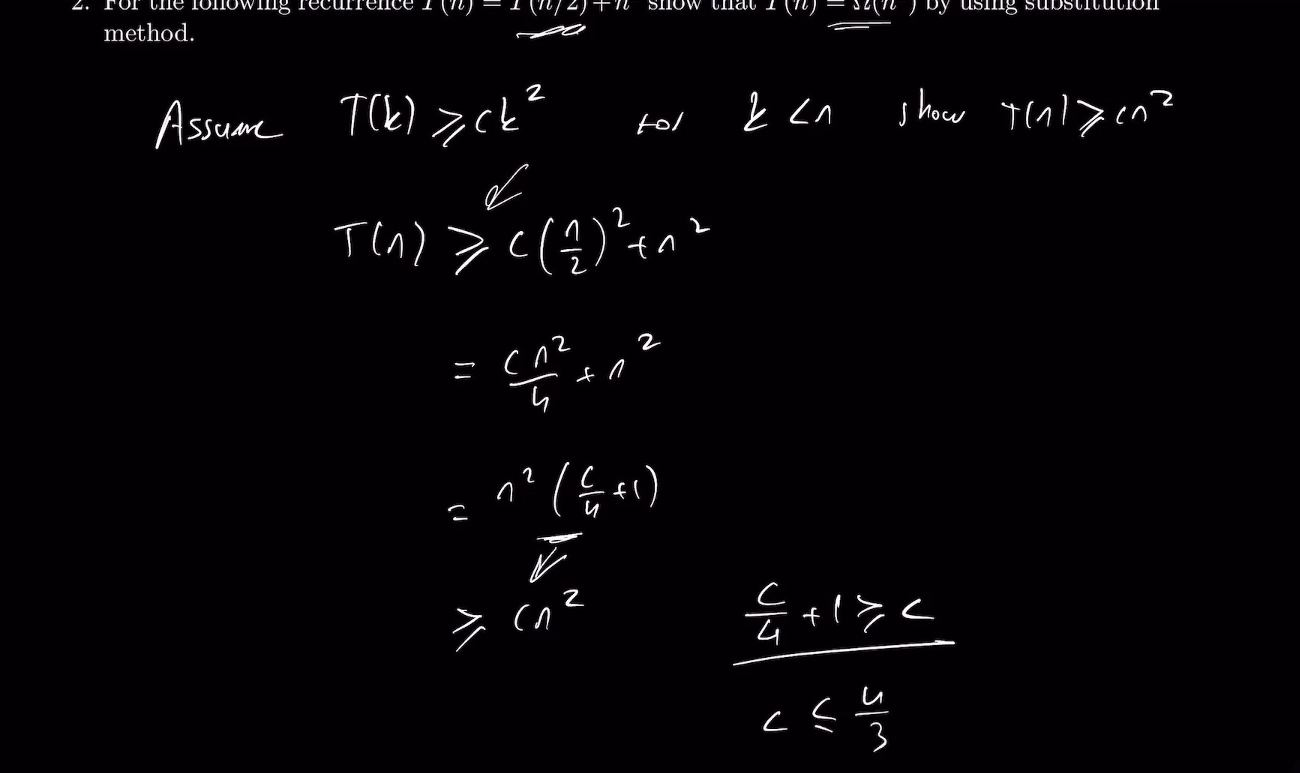 2. For the following recurrence T(n) = T(n/2)+n² show that T(n) = Ω(n²) by using substitution
method.
Assume T(k) ≥ ck² for k < n show T(n) ≥ cn²
T(n) ≥ c(n/2)² + n²
= cn²/4 + n²
= n²(c/4 + 1)
≥ cn² c/4 + 1 ≥ c
c ≤ 4/3